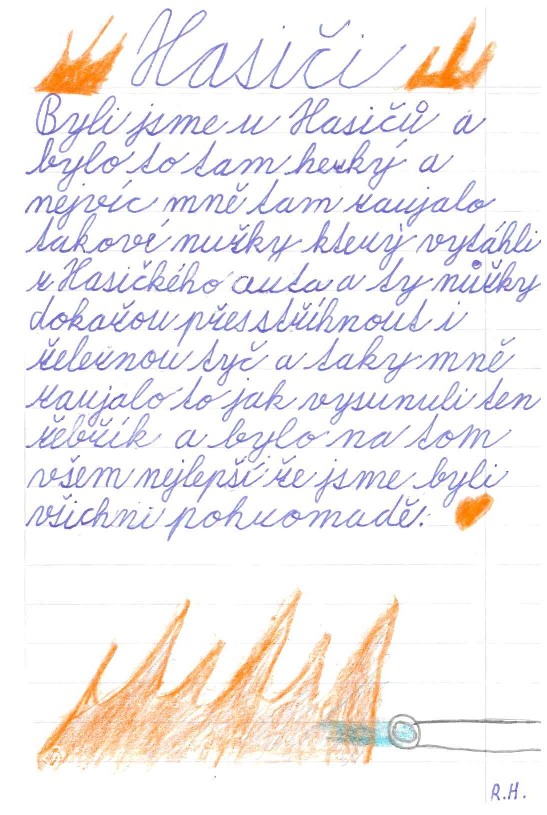 Hasiči
Byli jsme u Hasičů a
bylo to tam hezký a
nejvíc mně tam zaujalo
takové nužky který vytáhli
z Hasičkého auta a ty nůžky
dokažou přesstřihnout i
železnou tyč a taky mně
zaujalo to jak vysunuli ten
žebřík a bylo na tom
všem nejlepší že jsme byli
všichni pohromadě.
R.H.